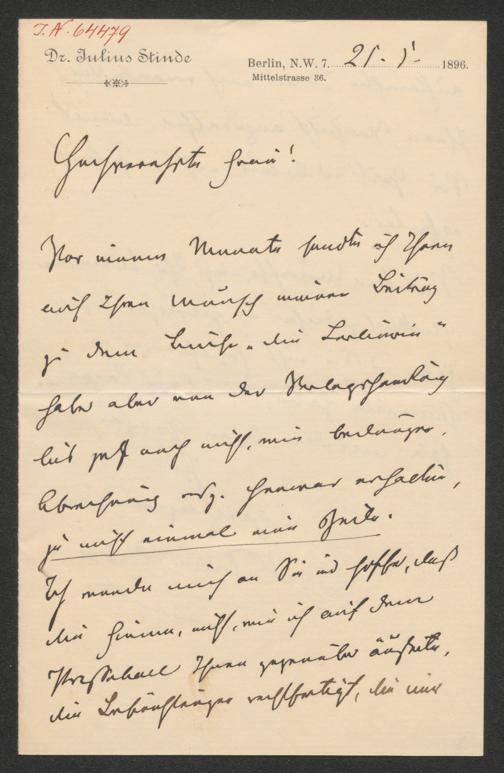 I.N. 64479
Dr. Julius Stinde
Berlin, N.W. 7. 21. 5. 1896.
Mittelstrasse 36.
Hochverehrte Frau!
Vor einem Monate sandte ich Ihnen
auf Ihren Wunsch meinen Beitrag
zu dem Buche „die Berlinerin“
habe aber von der Verlagshandlung
bis jetzt noch nicht, wie bedungen,
Abrechnung resp. Honorar erhalten,
ja nicht einmal eine Zeile.
Ich wende mich an Sie und hoffe, daß
die Firma, nicht, wie ich auf dem
Presseball Ihnen gegenüber äußerte,
die Befürchtungen rechtfertigt, die mir